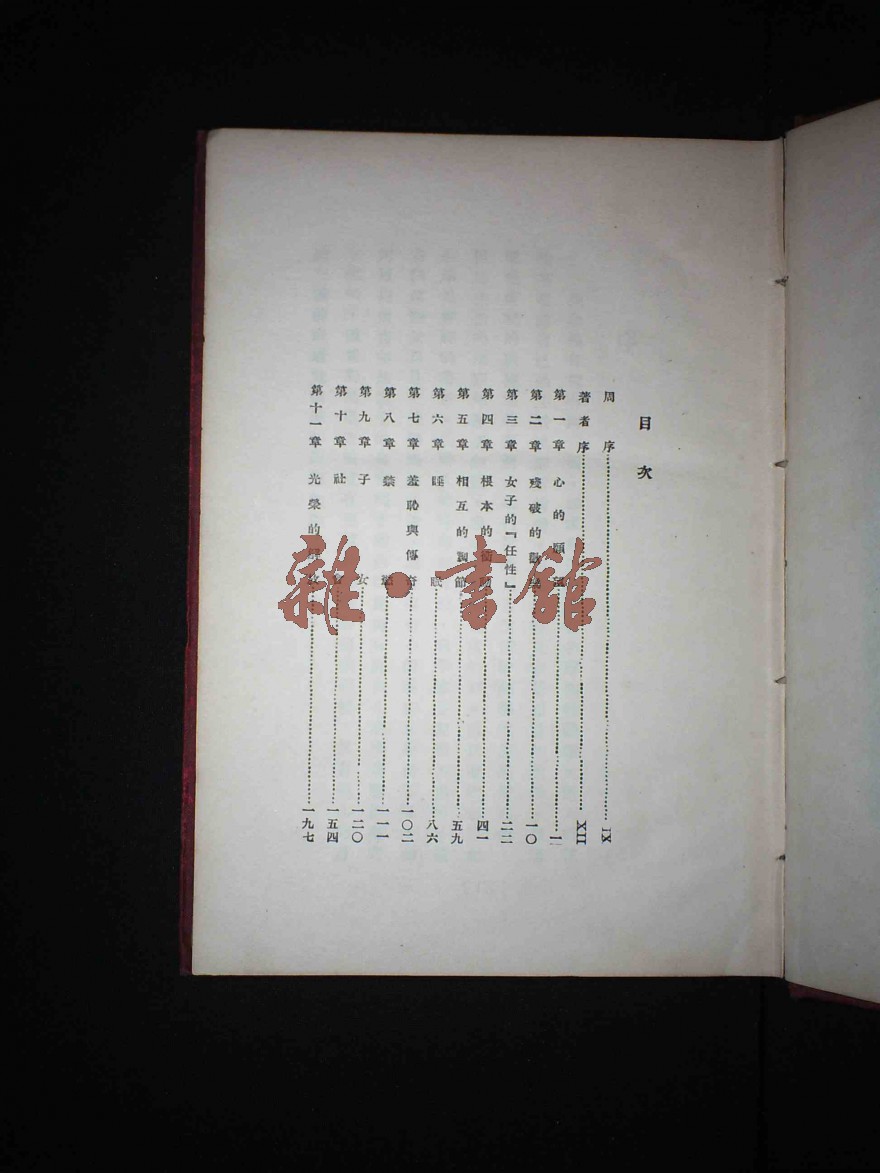 目次
周序 IX
著者序 XII
第一章 心的願望 一
第二章 殘破的歡樂 一〇
第三章 女子的『任性』 二二
第四章 根本的 四一
第五章 相互的調節 五九
第六章 睡眠 八六
第七章 羞恥與傳奇 一〇二
第八章 禁 一一一
第九章 子女 一二〇
第十章 社 一五四
第十一章 光榮的 一九七
雜·書館